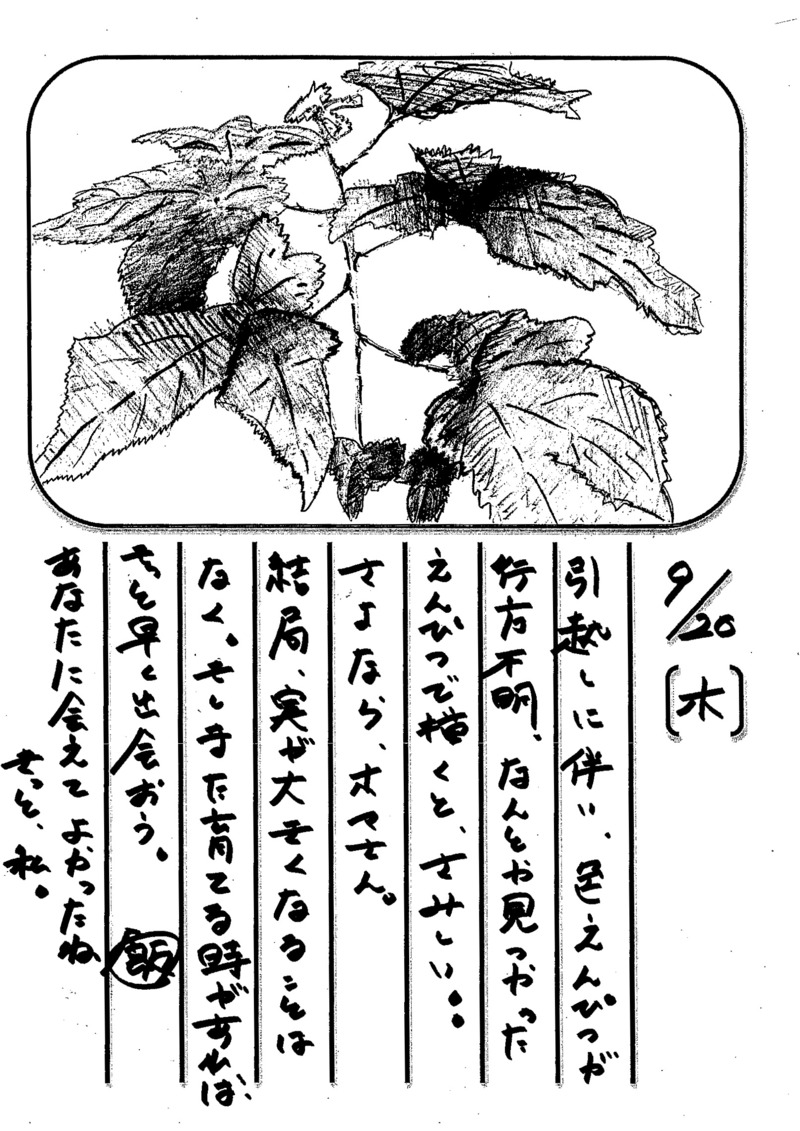 9/20
[木]
引越しに伴い、色えんぴつが
行方不明、なんとか見つかった
えんぴつで描くと、さみしい..
さよなら、オマさん。
結局、実が大きくなることは
なく。もしまた育てる時があれば、
もっと早く出会おう。 飯
あなたに会えてよかったね
きっと、私。